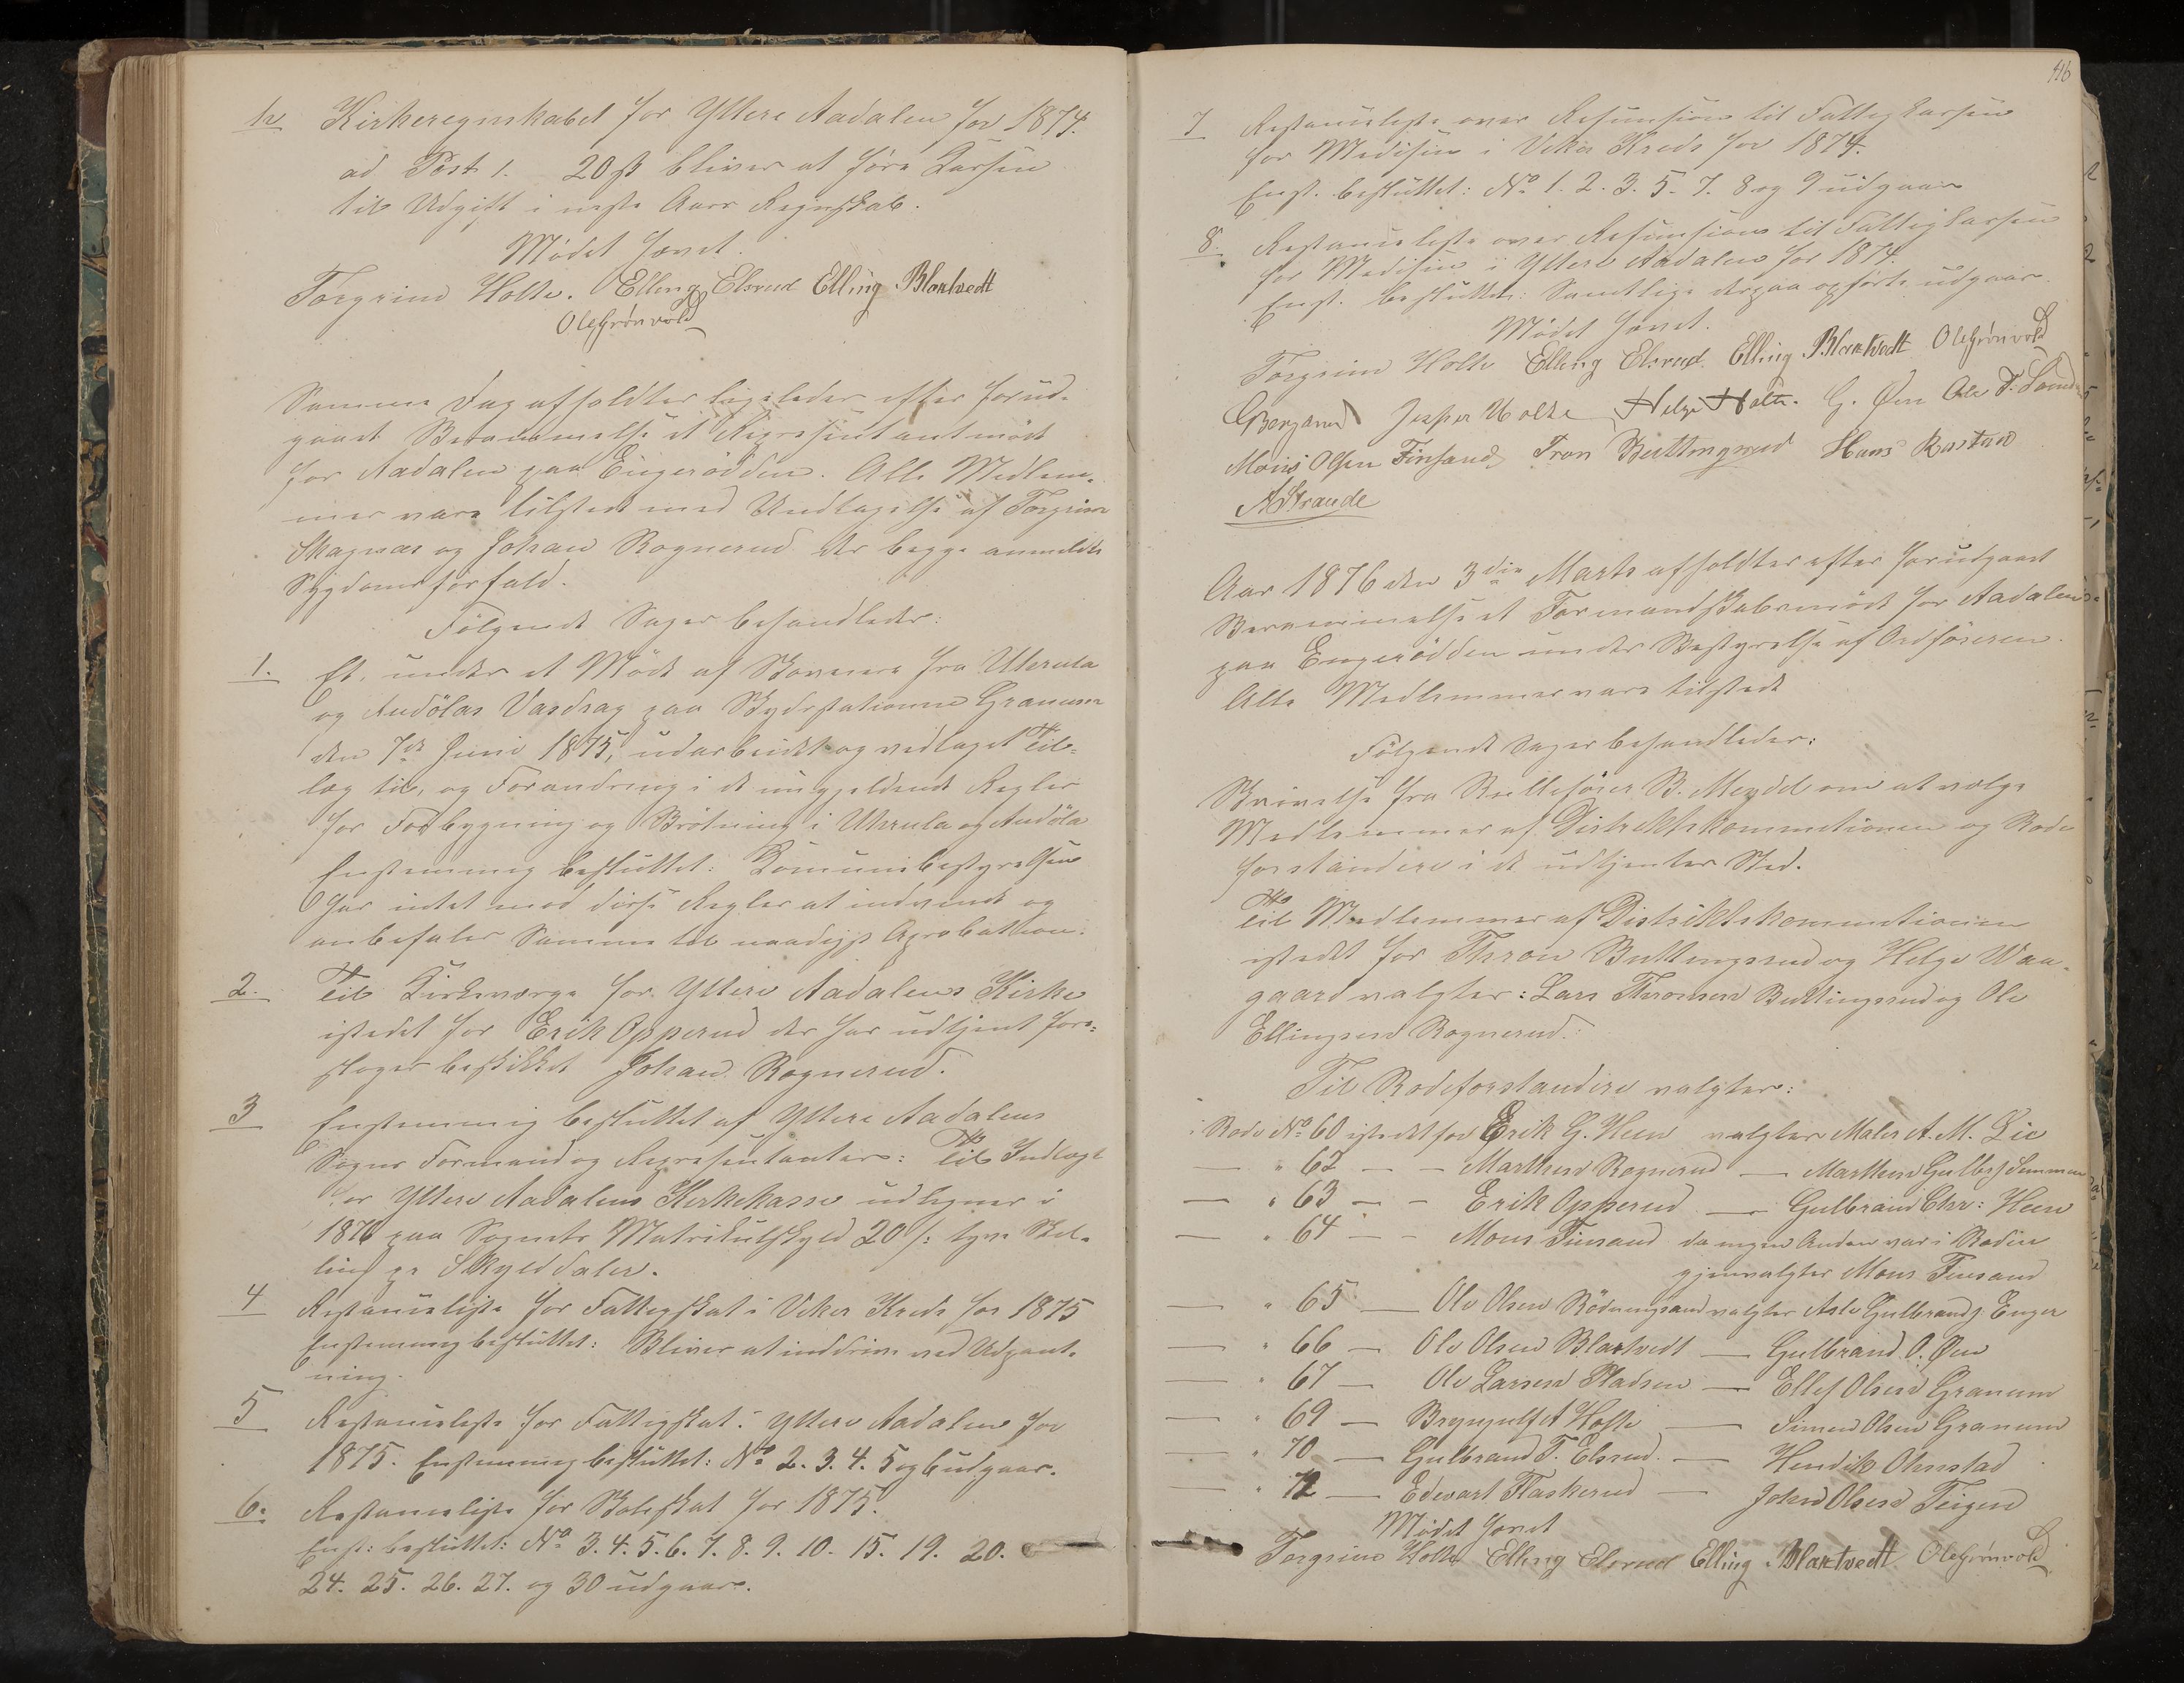 12 Kirkeregnskabet for Yttere Aadalen for 1874.
ad Post 1. 20 ß bliver at føre Kassen
til Udgift i neste Aars Regnskab.
Mødet hævet.
Torgrim Holte. Elling Elsrud Elling Blaktvedt
Ole Grønvold
Samme Dag afholdtes ligeledes efter forud-
gaaet Berammelse et Repræsentantmöde
for Aadalen paa Engerodden. Alle Medlem-
mer vare tilstede med Undtagelse af Torgrim
Skagnæs og Johan Rognerud der begge anmeldte
Sygdomsforfald.
Følgende Sager behandledes:
1. Et, under et Möde af Skoveiere fra Uhrula
og Audölas Vasdrag paa Skydsstationen Granum
den 7de Juni 1875, udarbeidet og vedtaget Til-
læg til, og Forandring i de nugjeldende Regler
for Forbygning og Brötning i Uhrula og Audöla
Enstemmig besluttet: Komunebestyrelsen
har intet mod disse Regler at indvende og
anbefaler Samme til naadigst Aprobation.
2. Til Kirkeværge for Yttere Aadalens Kirke
istedet for Erik Opperud der har udtjent fore-
slages beskikket Johan Rognerud.
3 Enstemmig besluttet af Ytterе Aadalens
Sogns Formænd og Repræsentanter: Til Indtægt
for Ytterе Aadalens Kirkekasse udlignes i
1876 paa Sognets Matrikulskyld 20 ß: tyve Skil-
ling pr Skylddaler.
4 Restanceliste for Fattigskat i Veker Kreds for 1875
Enstemmig besluttet: Bliver at inddrive ved Udpant-
ning.
5 Restanceliste for Fattigskat i Ytterе Aadalen for
1875. Enstemmig besluttet: No 2. 3. 4. 5 og 6 udgaar.
6. Restanceliste for Skoleskat for 1875.
Enst: besluttet: No 3. 4. 5. 6. 7. 8. 9. 10. 15. 19. 20.
24. 25. 26. 27. og 30 udgaar.
416
7 Restanceliste over Refusion til Fattigkassen
for Medisin i Veker Kreds for 1874.
Enst. besluttet: No 1. 2. 3. 5. 7. 8 og 9 udgaar
8. Restanceliste over Refusion til Fattigkassen
for Medisin i Ytterе Aadalen for 1874.
Enst. besluttet: Samtlige derpaa opførte udgaar.
Mødet hævet.
Torgrim Holte Elling Elsrud. Elling Blaktvedt Ole Grønvold
Jesper Holte Helge Holte. G. Øen Ole T.
Mons Olsen Finsand Tron Buttingsrud Hans
A Strande
Aar 1876 den 3die Marts afholdtes efter forudgaaet
Berammelse et Formandskabsmöde for Aadalen
paa Engerodden under Bestyrelse af Ordføreren.
Alle Medlemmer vare tilstede
Følgende Sager behandledes:
Skrivelse fra Rulleförer B. Meydel om at vælge
Medlemmer af Distriktskommitionen og Rode
forstandere i de udtjentes Sted.
Til Medlemmer af Distriktskommitionen
istedet for Thron Buttingsrud og Helge Waa-
gaard valgtes: Lars Thronsen Buttingsrud og Ole
Ellingsen Rognerud.
Til Rodeforstandere valgtes:
i Rode No 60 istedet for Erik G. Heen valgtes Maler A. M. Lie
— " 62 — - Marthin Rognerud — Marthin Gulbr: Semmen
— " 63 — - Erik Opperud — Gulbrand Chr: Heen
— " 64 — - Mons Finsand da ingen Anden var i Roden
gjenvalgtes Mons Finsand
— " 65 — Ole Olsen Rödningsand valgtes Asle Gulbrands: Enger
— " 66 — Ole Olsen Blaktvedt — Gulbrand O. Øen
— " 67 — Ole Larsen Pladsen — Ellef Olsen Granum
— " 69 — Brynjulf A Hofte — Simen Olsen Granum
— " 70 — Gulbrand T. Elsrud. — Hendrik Olmstad
— " 72 — Edevart Flaskerud — John Olsen Teigen
Mødet hævet
Torgrim Holte Elling Elsrud Elling Blaktvedt Ole Grønvold